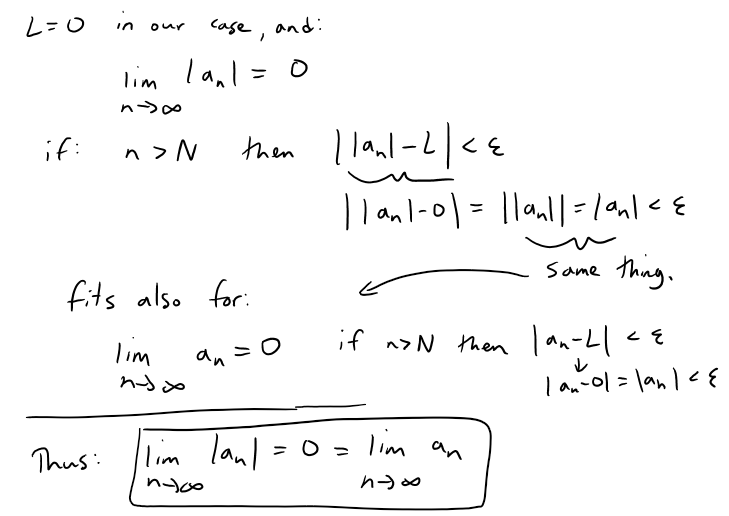 L=0 in our case, and:
lim |aₙ| = 0
n→∞
if: n > N then ||aₙ|-L| < ε
||aₙ|-0| = ||aₙ|| = |aₙ| < ε
same thing.
fits also for:
lim aₙ = 0 if n>N then |aₙ-L| < ε
n→∞ |aₙ-0| = |aₙ| < ε
Thus: lim |aₙ| = 0 = lim aₙ
n→∞ n→∞